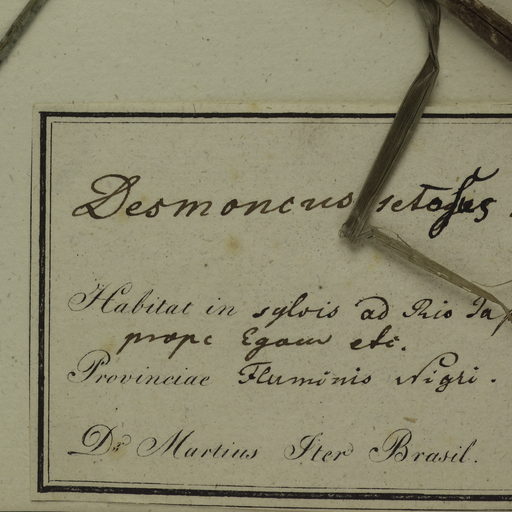 Desmoncus setosus
Habitat in sylvis ad Rio Ja
prope Egam etc.
Provinciae Fluminis Nigri.
Dr Martius Iter Brasil.